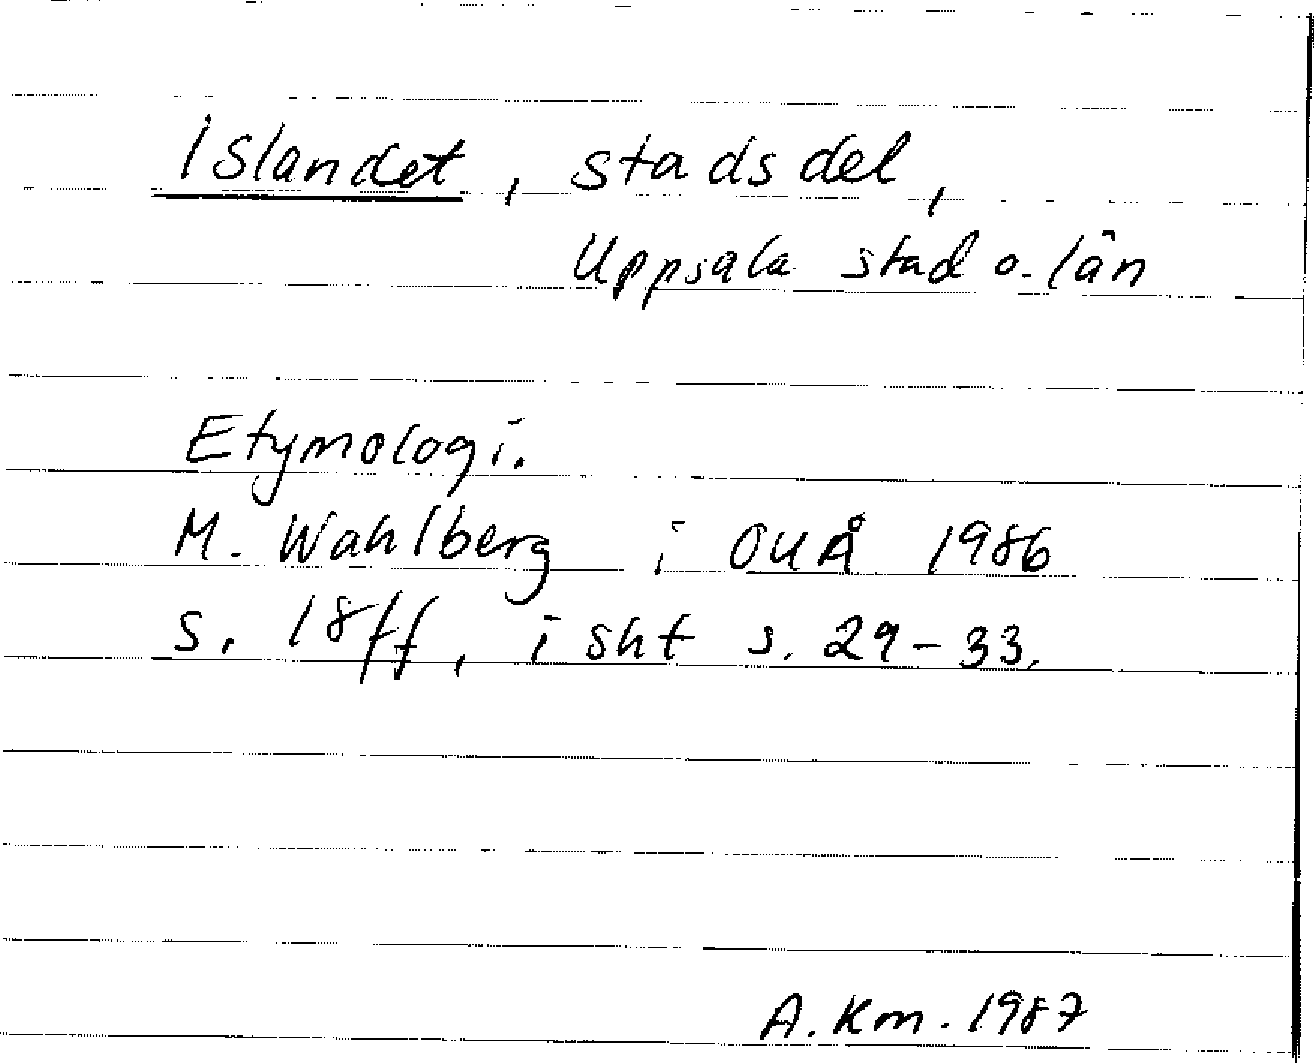 Islandet, stadsdel,
Uppsala stad o. län
Etymologi.
M. Wahlberg i OUÅ 1986
s. 18ff, i sht s. 29-33.
A. Km. 1987